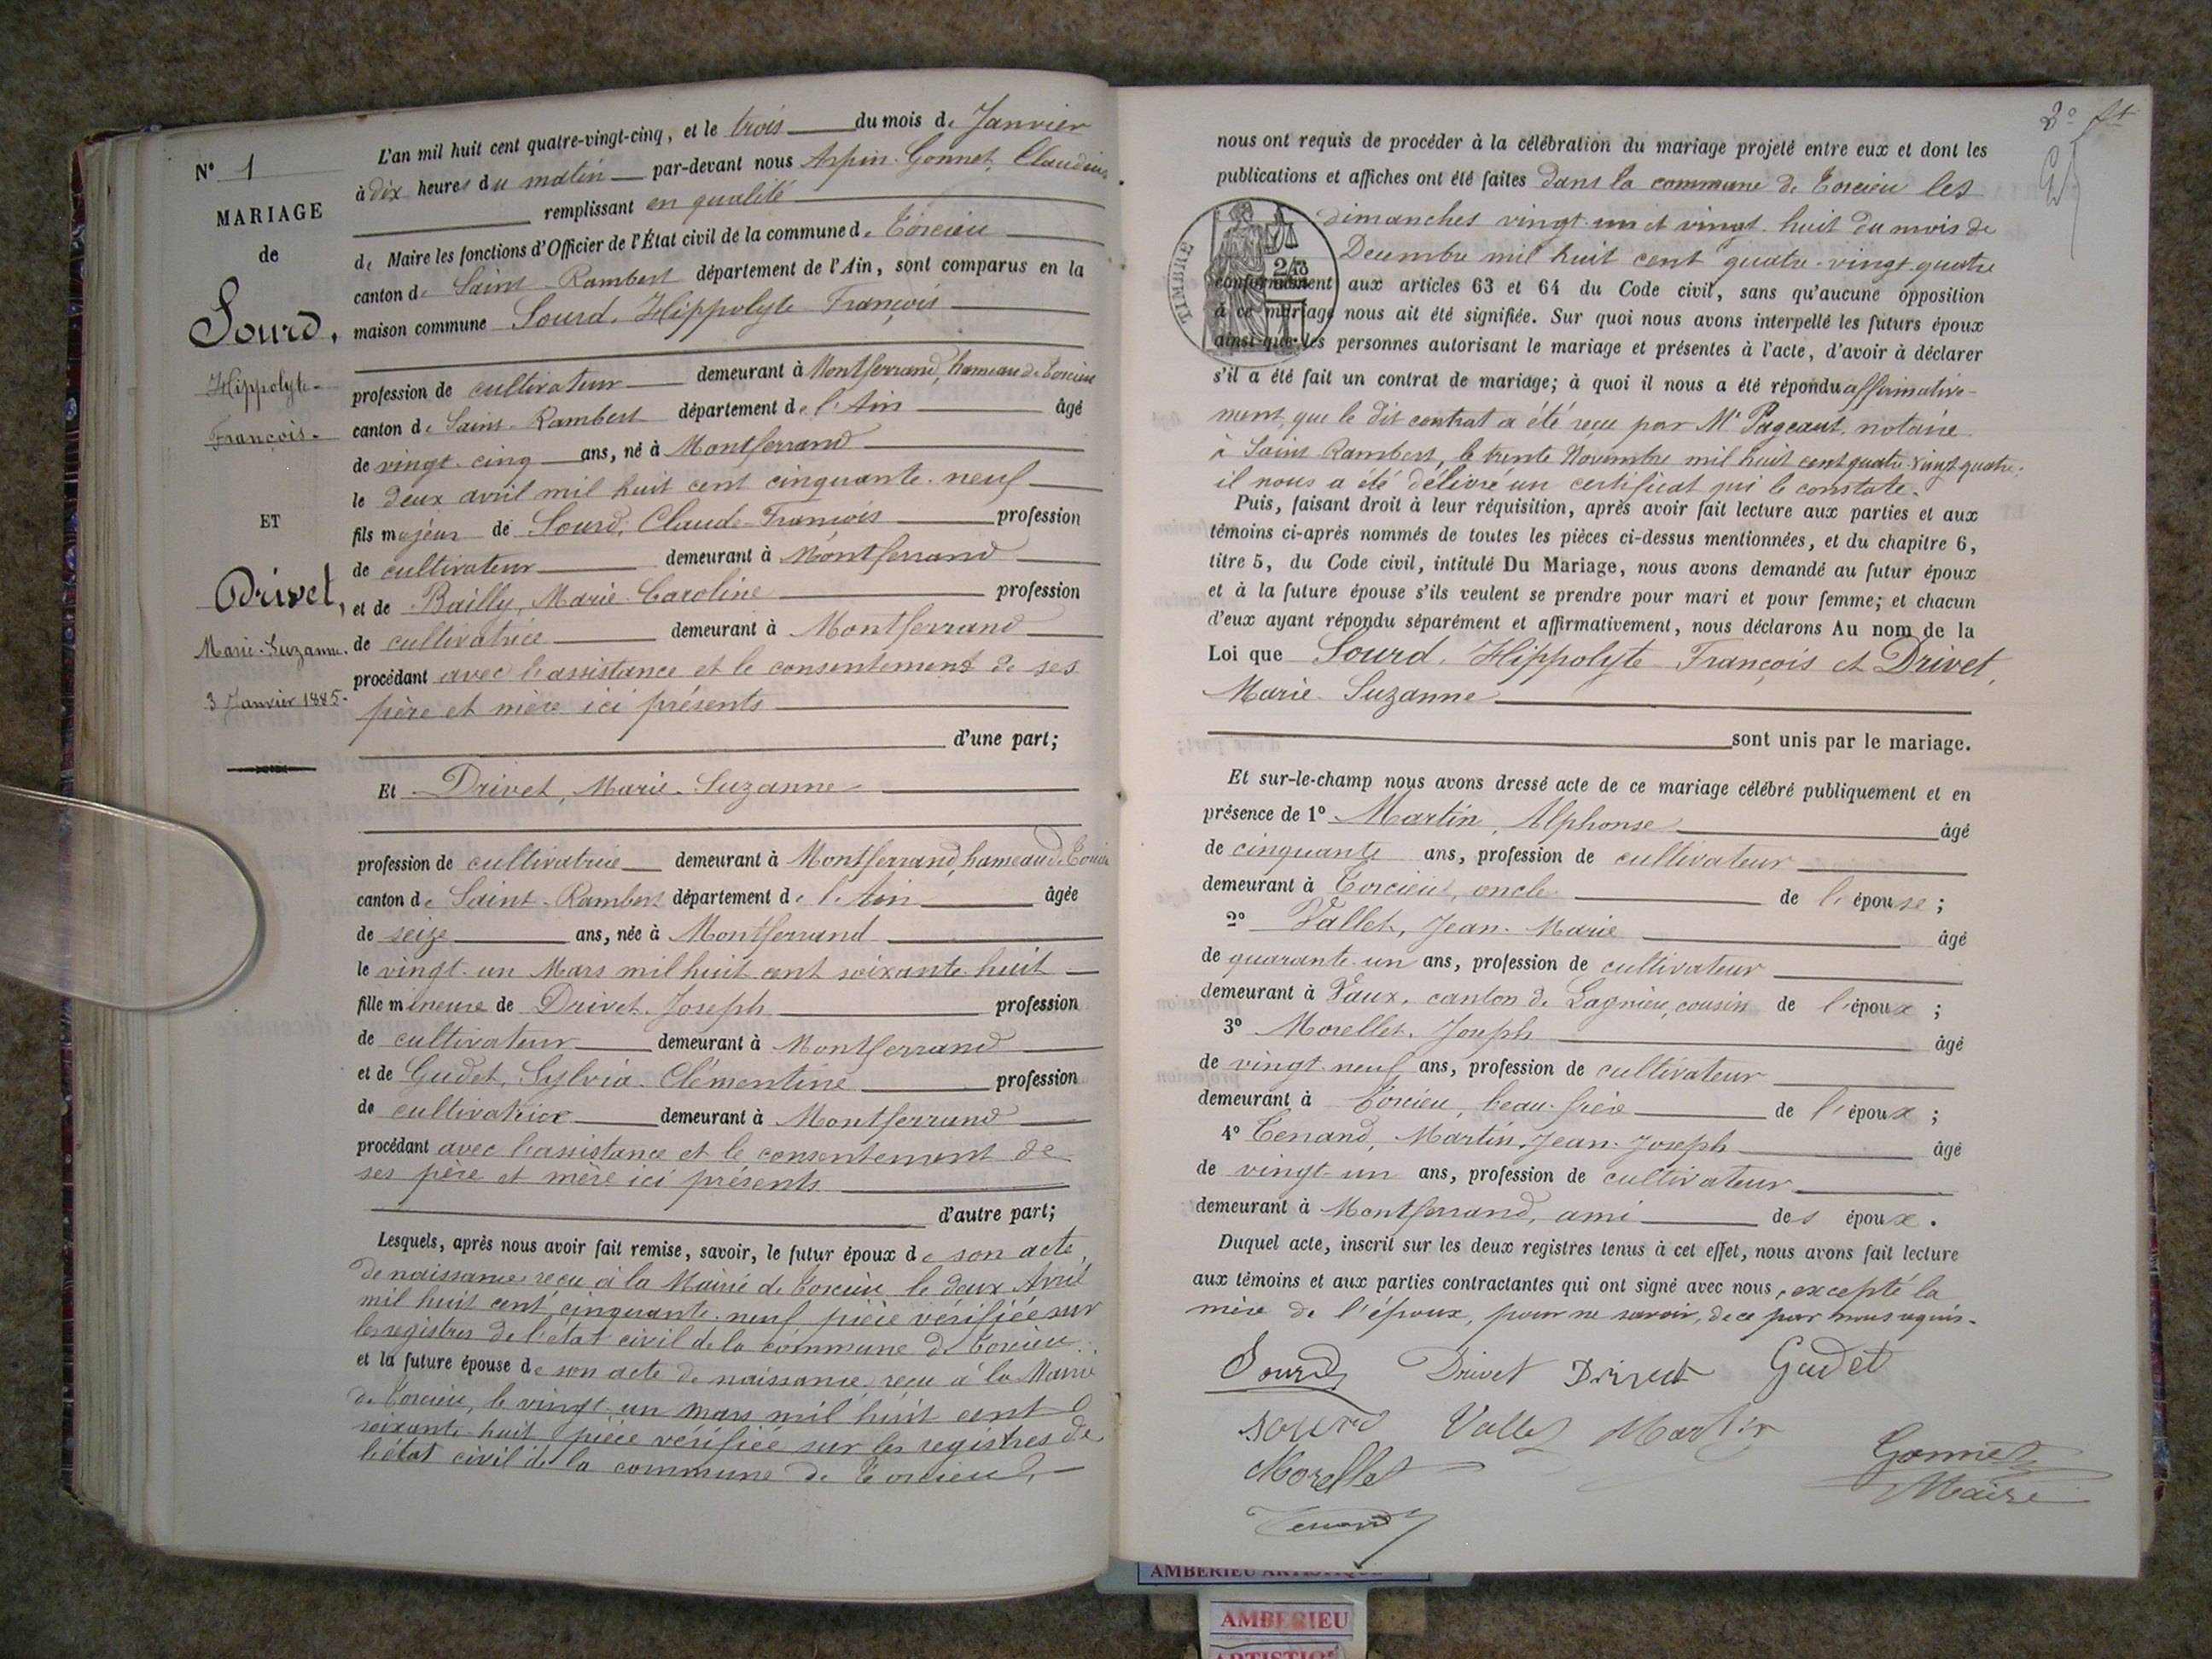 N° 1
MARIAGE
de
Sourd,
Hippolyte-
François.
ET
Drivet,
Marie-Suzanne.
3 Janvier 1885.
L'an mil huit cent quatre-vingt-cinq, et le trois du mois de Janvier
à dix heures du matin par-devant nous Arpin-Gonnet, Claudius
remplissant en qualité
de Maire les fonctions d'Officier de l'État civil de la commune de Torcieu
canton de Saint-Rambert département de l'Ain, sont comparus en la
maison commune Sourd, Hippolyte François
profession de cultivateur demeurant à Montferrand, hameau de Torcieu
canton de Saint-Rambert département de l'Ain âgé
de vingt-cinq ans, né à Montferrand
le deux avril mil huit cent cinquante-neuf
fils majeur de Sourd, Claude-François profession
de cultivateur demeurant à Montferrand
et de Bailly, Marie-Caroline profession
de cultivatrice demeurant à Montferrand
procédant avec l'assistance et le consentement de ses
père et mère ici présents
d'une part;
Et Drivet, Marie-Suzanne
profession de cultivatrice demeurant à Montferrand, hameau de Torcieu
canton de Saint-Rambert département de l'Ain âgée
de seize ans, née à Montferrand
le vingt-un Mars mil huit cent soixante-huit
fille mineure de Drivet, Joseph profession
de cultivateur demeurant à Montferrand
et de Gudet, Sylvia-Clémentine profession
de cultivatrice demeurant à Montferrand
procédant avec l'assistance et le consentement de
ses père et mère ici présents
d'autre part;
Lesquels, après nous avoir fait remise, savoir, le futur époux de son acte
de naissance reçu à la Mairie de Torcieu le deux Avril
mil huit cent cinquante-neuf pièce vérifiée sur
les registres de l'état civil de la commune de Torcieu.
et la future épouse de son acte de naissance reçu à la Mairie
de Torcieu, le vingt-un mars mil huit cent
soixante-huit pièce vérifiée sur les registres de
l'état civil de la commune de Torcieu,
2° ft
nous ont requis de procéder à la célébration du mariage projeté entre eux et dont les
publications et affiches ont été faites dans la commune de Torcieu les
dimanches vingt-un et vingt-huit du mois de
Decembre mil huit cent quatre-vingt-quatre
TIMBRE
conformément aux articles 63 et 64 du Code civil, sans qu'aucune opposition
à ce mariage nous ait été signifiée. Sur quoi nous avons interpellé les futurs époux
ainsi que les personnes autorisant le mariage et présentes à l'acte, d'avoir à déclarer
s'il a été fait un contrat de mariage; à quoi il nous a été répondu affirmative-
ment, que le dit contrat a été reçu par Me Pageaut, notaire
à Saint-Rambert, le trente Novembre mil huit cent quatre-vingt-quatre;
il nous a été délivré un certificat qui le constate.
Puis, faisant droit à leur réquisition, après avoir fait lecture aux parties et aux
témoins ci-après nommés de toutes les pièces ci-dessus mentionnées, et du chapitre 6,
titre 5, du Code civil, intitulé Du Mariage, nous avons demandé au futur époux
et à la future épouse s'ils veulent se prendre pour mari et pour femme; et chacun
d'eux ayant répondu séparément et affirmativement, nous déclarons Au nom de la
Loi que Sourd, Hippolyte François et Drivet,
Marie-Suzanne
sont unis par le mariage.
Et sur-le-champ nous avons dressé acte de ce mariage célébré publiquement et en
présence de 1° Martin, Alphonse âgé
de cinquante ans, profession de cultivateur
demeurant à Torcieu, oncle de l'épouse;
2° Vallet, Jean-Marie âgé
de quarante-un ans, profession de cultivateur
demeurant à Vaux, canton de Lagnieu, cousin de l'époux;
3° Morellet, Joseph âgé
de vingt-neuf ans, profession de cultivateur
demeurant à Torcieu, beau-frère de l'époux;
4° Tenand, Martin, Jean-Joseph âgé
de vingt-un ans, profession de cultivateur
demeurant à Montferrand, ami des époux.
Duquel acte, inscrit sur les deux registres tenus à cet effet, nous avons fait lecture
aux témoins et aux parties contractantes qui ont signé avec nous, excepté la
mère de l'époux, pour ne savoir, de ce par nous requis.
Sourd Drivet Drivet Gudet
Sourd Vallet Martin
Morellet Gonnet
Maire
Tenand
AMBERIEU ARTISTIQUE
AMBERIEU
ARTISTIQUE